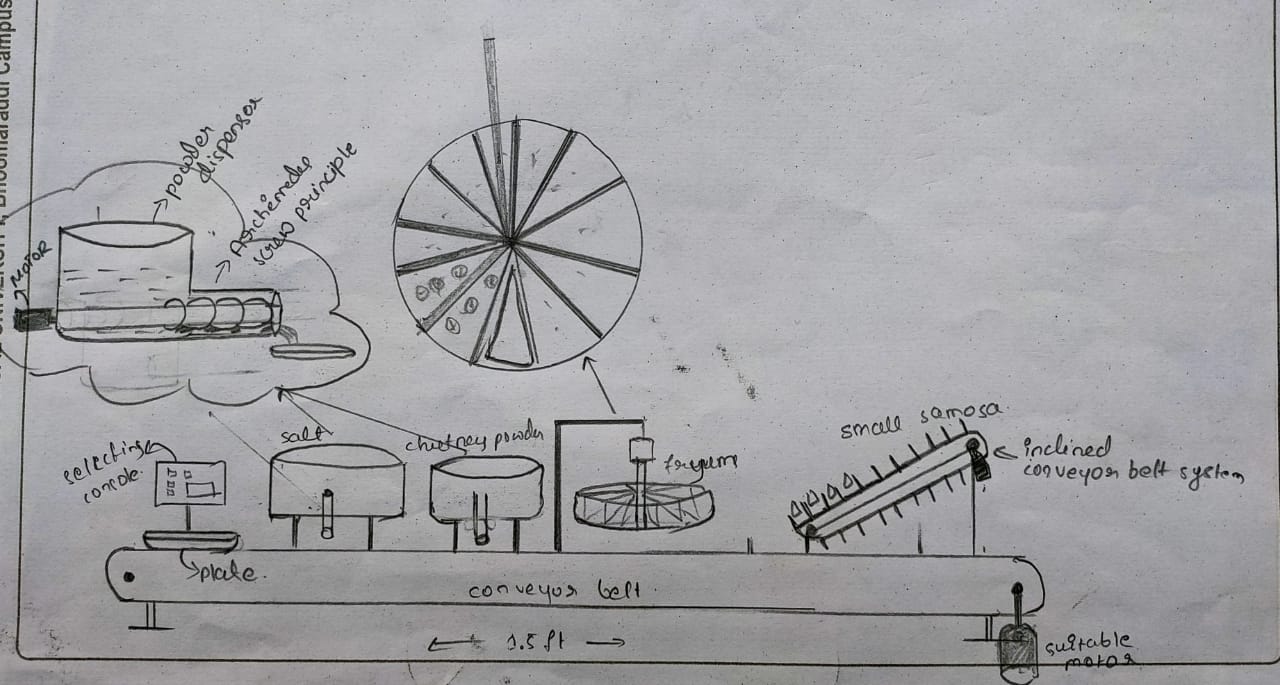 powder
dispensor
Archimedes
screw principle
MOTOR
selecting
console.
salt
chutney powder
fryums
small samosa
inclined
conveyor belt system
plate.
conveyor belt
1.5 ft
suitable
motor